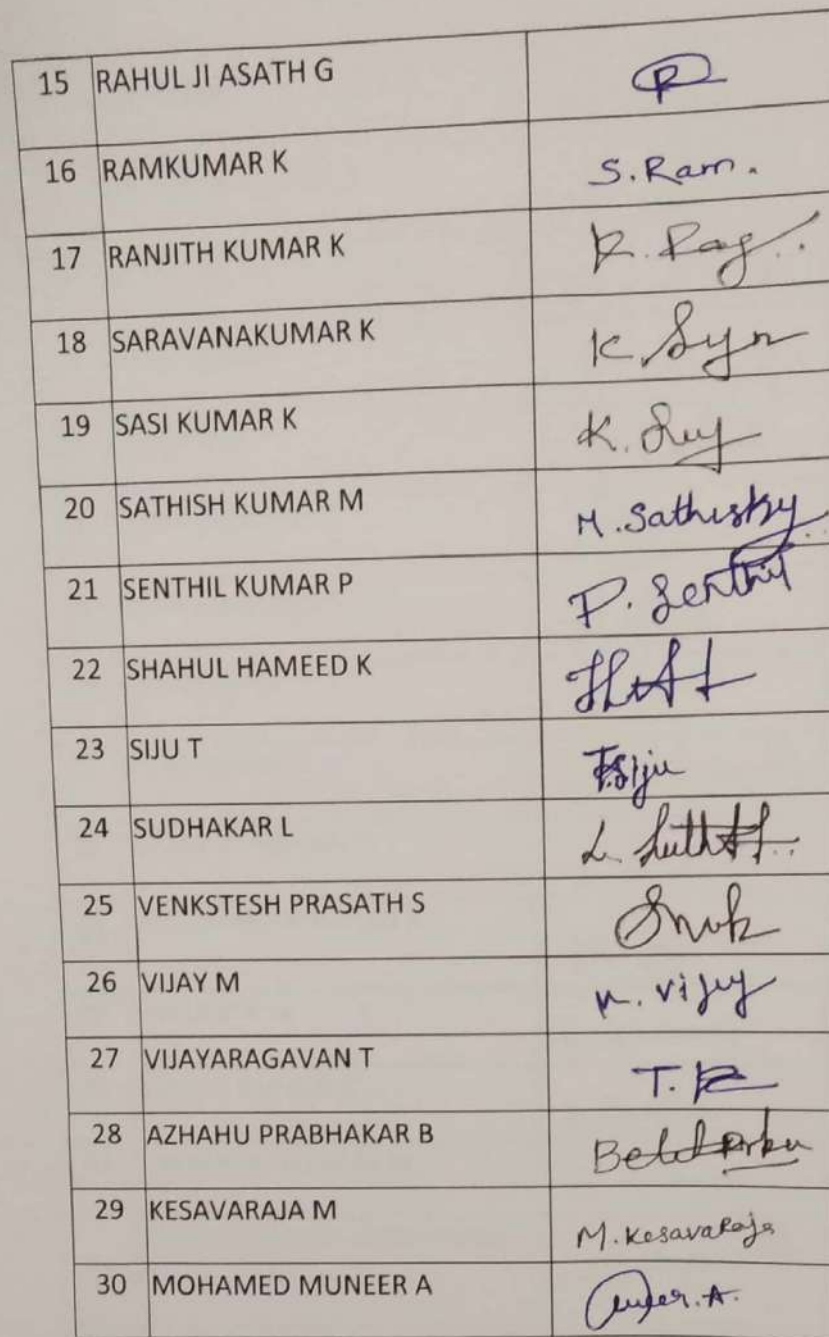 15 RAHUL JI ASATH G
16 RAMKUMAR K S. Ram.
17 RANJITH KUMAR K
18 SARAVANAKUMAR K
19 SASI KUMAR K
20 SATHISH KUMAR M
21 SENTHIL KUMAR P P. Senthil
22 SHAHUL HAMEED K
23 SIJU T T.Siju
24 SUDHAKAR L
25 VENKSTESH PRASATH S
26 VIJAY M M. Vijay
27 VIJAYARAGAVAN T
28 AZHAHU PRABHAKAR B
29 KESAVARAJA M M. KesavaRaja
30 MOHAMED MUNEER A